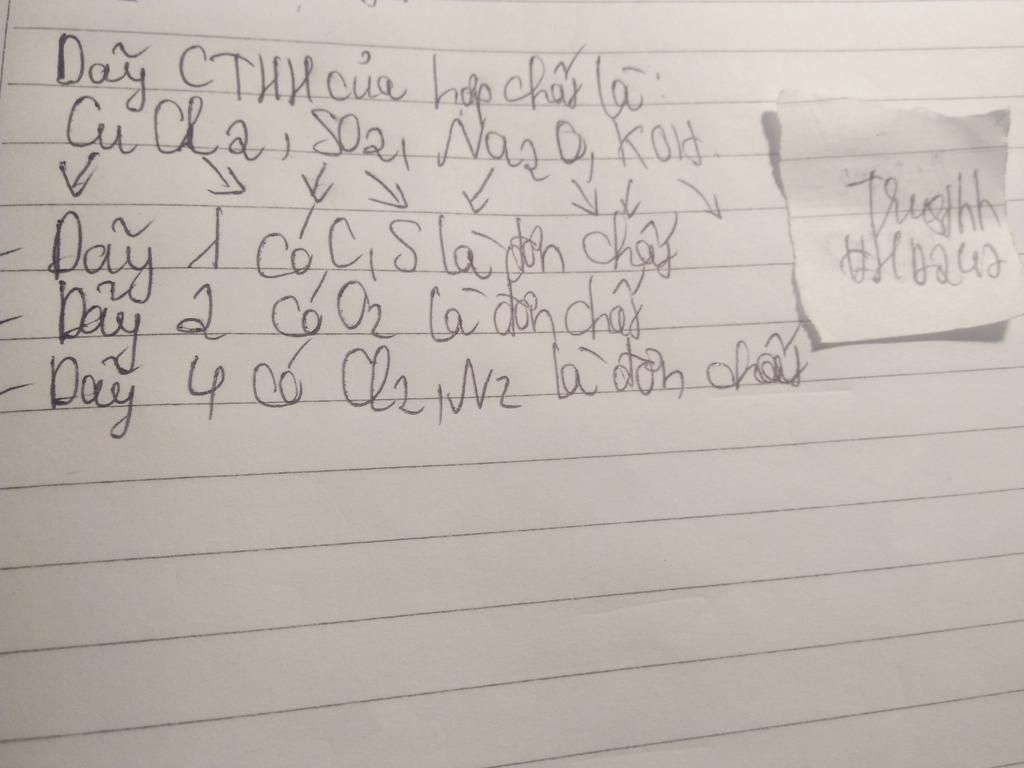 Dãy CTHH của hợp chất là:
CuCl2, SO2, Na2O, KOH.
- Dãy 1 có C, S là đơn chất
- Dãy 2 có O2 là đơn chất
- Dãy 4 có Cl2, N2 là đơn chất